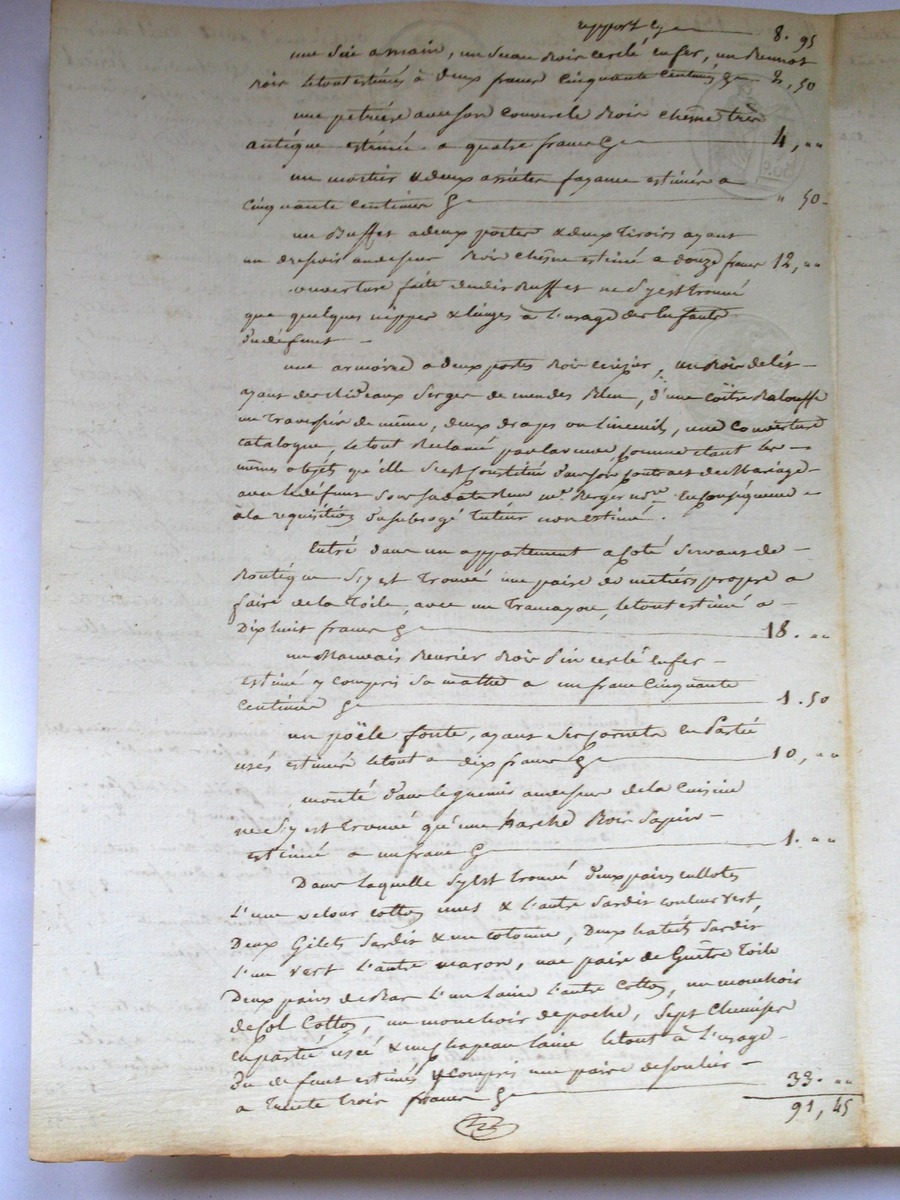 report cy 8. 95
une Scie a main, un Seau Bois cerclé en fer, un
Bois le tout estimés à deux francs Cinquante Centimes 2, 50
une petrière avec son couvercle Bois chêne très
antique estimée a quatre francs 4, ""
un mortier & deux assiettes fayance estimés a
Cinquante Centimes " 50
un Buffet a deux portes & deux Tiroirs ayant
un dressoir au dessus Bois chêne estimé a douze francs 12, ""
ouverture faite dudit Buffet ne s'y est trouvé
que quelques nippes & linges à l'usage des Enfants
du défunt
une armoire a deux portes Bois cerisier, un Bois de lit
ayant des Rideaux Serge de mendes Bleu, d'une Coitre Balouffe
un Traversier de même, deux draps ou Linceuils, une Couverture
catalogne, le tout Reclamé par la veuve comme etant les
mêmes objets qu'elle s'est Constitué dans son Contrat de Mariage
avec le défunt Sous sa date Reçu Me Berger nre En conséquence
à la requisition du subrogé Tuteur non estimé.
Entré dans un appartement a Coté Servant de
Boutique S'y est Trouvé une paire de metiers propre a
faire de la Toile, avec un Tramayou, le tout estimé a
Dix huit francs 18. ""
un Mauvais Bois Pin cerclé en fer
estimé y compris Sa a un franc Cinquante
Centimes 1. 50
un poële fonte, ayant Ses Cornets En Partie
usés estimé le tout a dix francs 10, ""
monté dans le grenier au dessus de la Cuisine
ne S'y est trouvé qu'une Bois Sapin
estimée a un franc 1. ""
Dans laquelle S'y est trouvé deux paires cullotes
L'une velour cotton & L'autre Sardis couleur vert,
Deux Gilets Sardis & un cotonne, Deux habits Sardis
L'un Vert L'autre maron, une paire de Guêtre Toile
Deux paires de Bas L'un Laine L'autre Cotton, un mouchoir
de Col Cotton, un mouchoir de poche, Sept Chemises
En partie usée & un chapeau Laine le tout à L'usage
du defunt estimés y compris une paire de Soulier
a Trente Trois francs 33. ""
91, 45